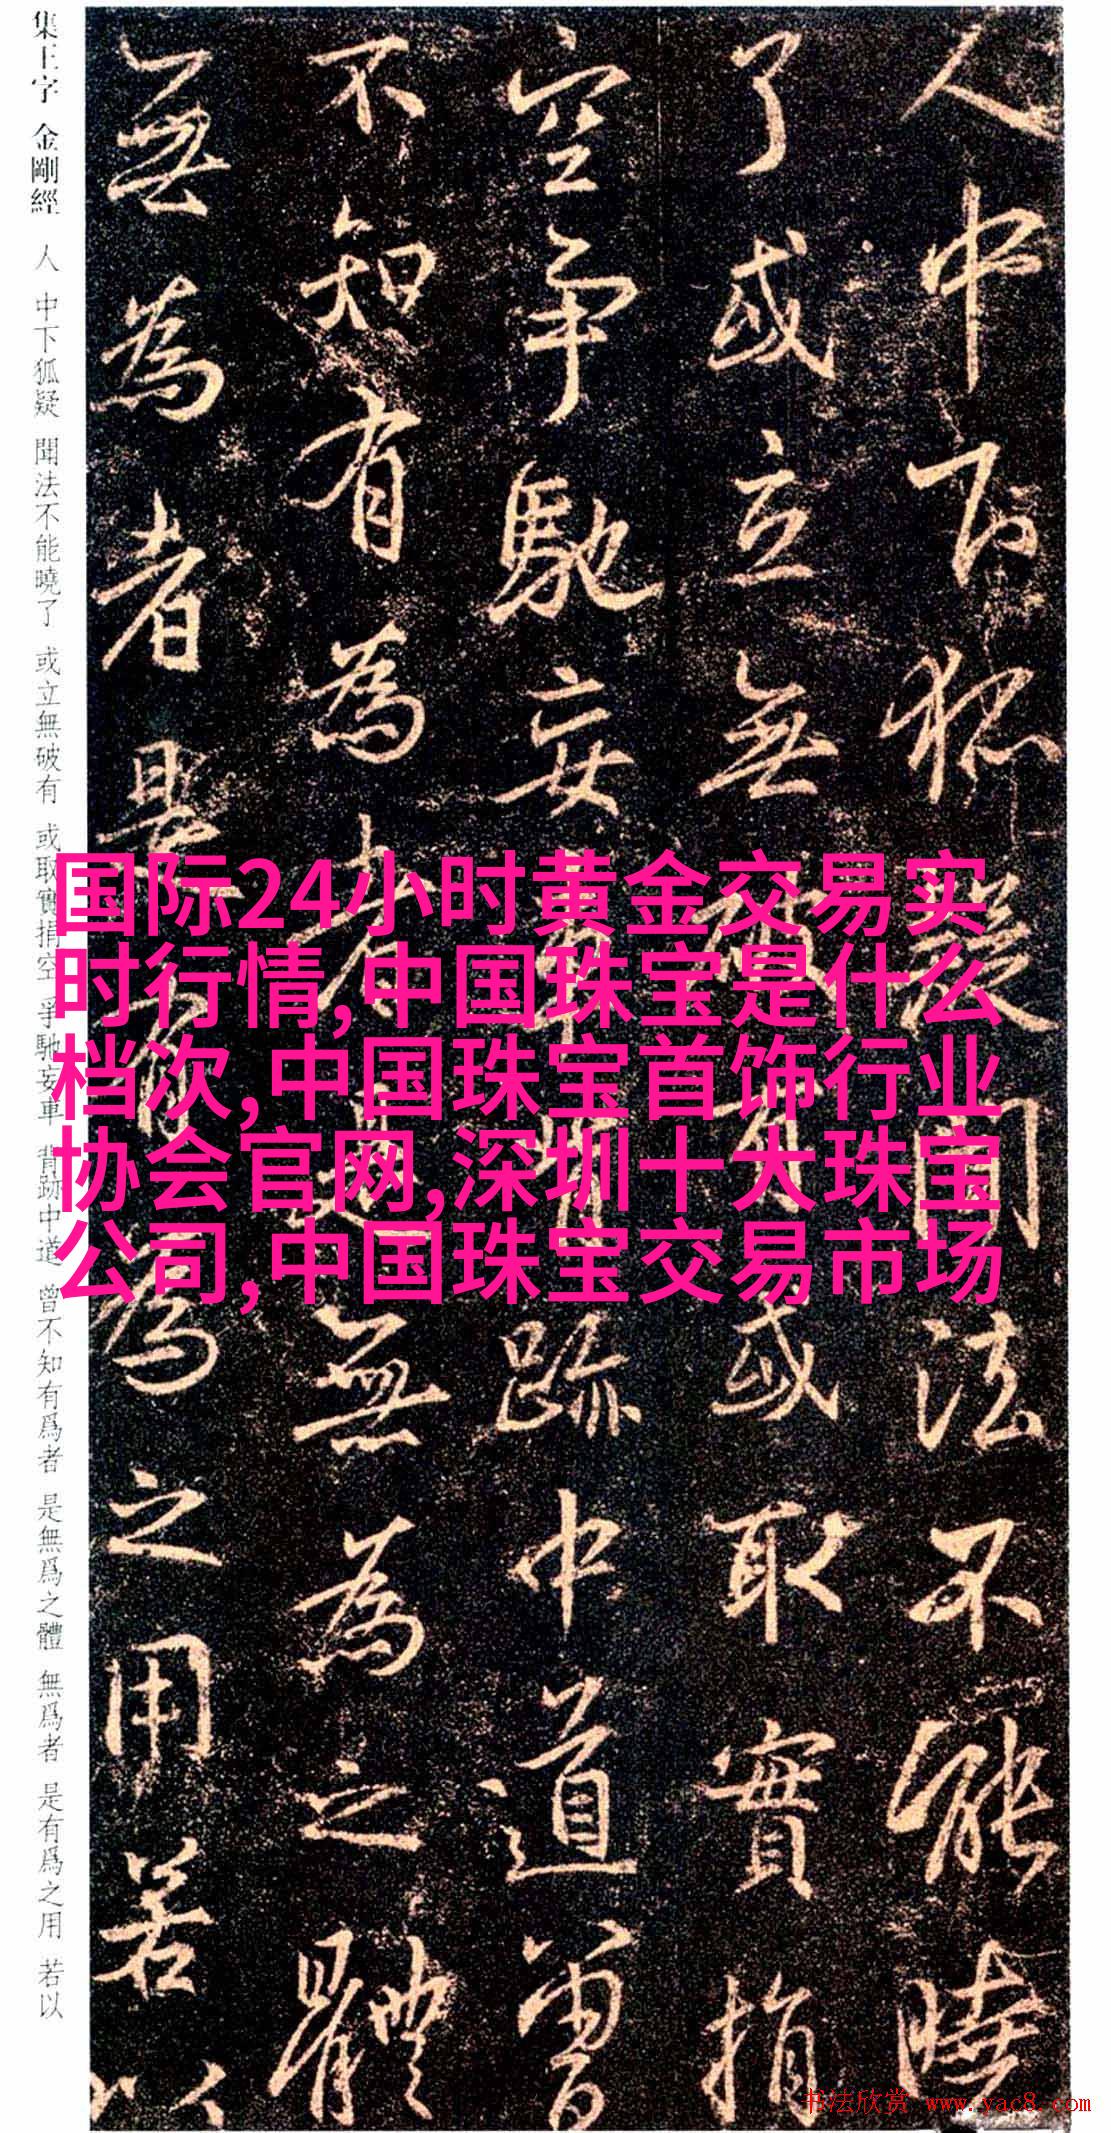 集王字 金剛經 人 中下狐疑 聞法不能曉了 或立無破有 或取實捐空 爭馳妄車 背跡中道 曾不知有爲者 是無爲之體 無爲者 是有爲之用 若以
人中下狐疑聞法不能曉
了或立無破有或取實捐
空爭馳妄車背跡中道曾
不知有為者是無為之體
無為者是有為之用若以
国际24小时黄金交易实
时行情,中国珠宝是什么
档次,中国珠宝首饰行业
协会官网,深圳十大珠宝
公司,中国珠宝交易市场
书法欣赏 www.yac8.com